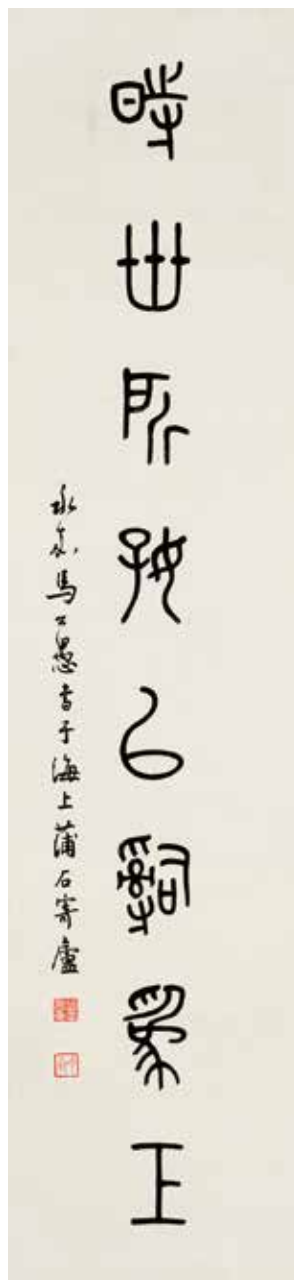 時世所好以辭為正
永嘉馬公愚書于海上蒲石寄廬